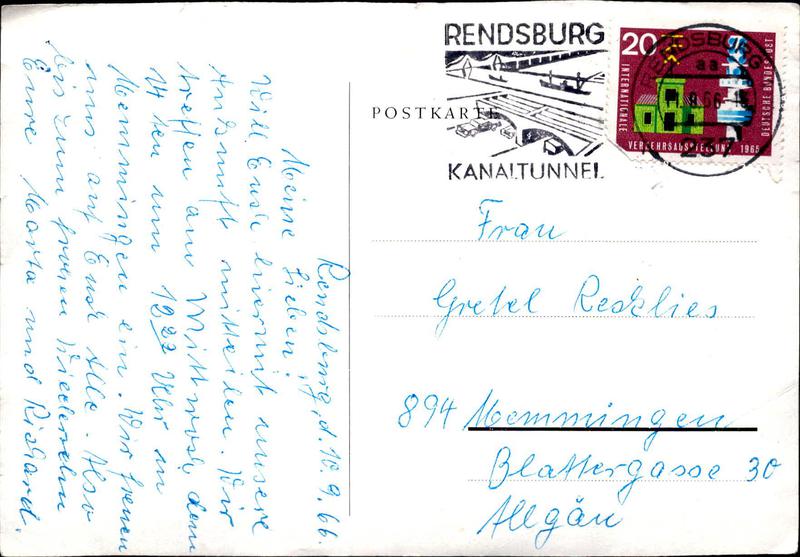 Rendsburg, d. 10.9.66.
Meine Lieben!
Will Euch hiermit unsere
Ankunft mitteilen. Wir
treffen am Mittwoch dem
14 ten um 18 22 Uhr in
Memmingen ein. Wir freuen
uns auf Euch Alle. Also
bis zum frohen Wiedersehn
Eure Marta und Richard.
POSTKARTE
RENDSBURG
KANALTUNNEL
20
INTERNATIONALE
VERKEHRSAUSSTELLUNG 1965
DEUTSCHE BUNDESPOST
RENDSBURG
aa
237
Frau
Gretel Recklies
894 Memmingen
Blattergasse 30
Allgäu